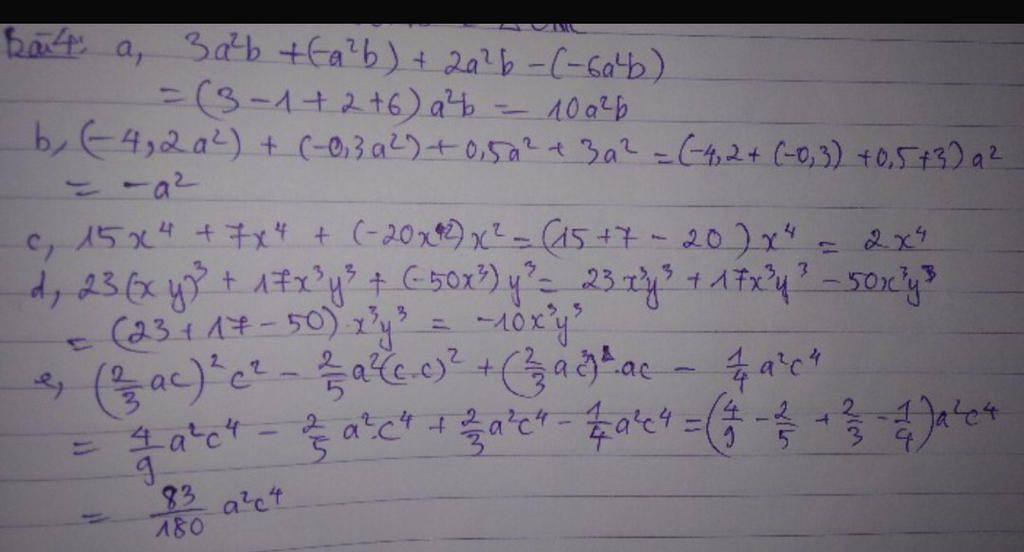 Bài 4: a, 3a²b + (-a²b) + 2a²b - (-6a²b)
= (3 - 1 + 2 + 6) a²b = 10a²b
b, (-4,2a²) + (-0,3a²) + 0,5a² + 3a² = (-4,2 + (-0,3) + 0,5 + 3) a²
= -a²
c, 15x⁴ + 7x⁴ + (-20x²) x² = (15 + 7 - 20) x⁴ = 2x⁴
d, 23(xy)³ + 17x³y³ + (-50x³) y³ = 23x³y³ + 17x³y³ - 50x³y³
= (23 + 17 - 50) x³y³ = -10x³y³
e, (2/3 ac)² c² - 2/5 a²(c.c)² + (2/3 ac³).ac - 1/4 a²c⁴
= 4/9 a²c⁴ - 2/5 a².c⁴ + 2/3 a²c⁴ - 1/4 a²c⁴ = (4/9 - 2/5 + 2/3 - 1/4) a²c⁴
= 83/180 a²c⁴